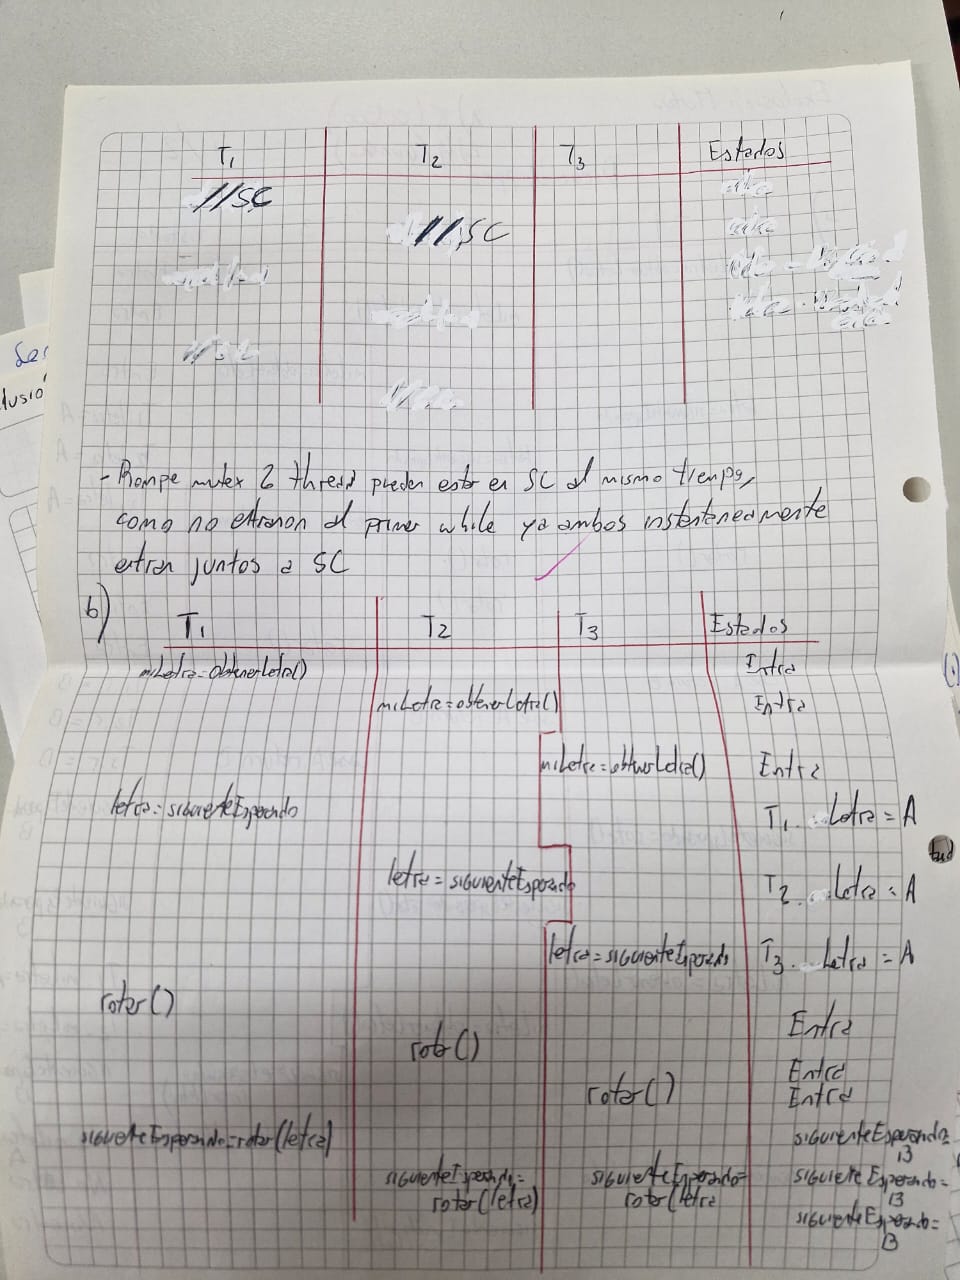 T1 T2 T3 Estados
//SC
//SC
- Rompe mutex 2 thread pueden estar en SC al mismo tiempo,
como no entraron al primer while ya ambos instantaneamente
entran juntos a SC
b) T1 T2 T3 Estados
miLetra=obtenerLetra() Entra
miLetra=obtenerLetra() Entra
miLetra=obtenerLetra() Entra
letra=siguienteEsperado T1 Letra=A
letra=siguienteEsperado T2 Letra=A
letra=siguienteEsperado T3 Letra=A
rotar() Entra
rotar() Entra
rotar() Entra
siguienteEsperado=rotar(letra) siguienteEsperado=
B
siguienteEsperado= siguienteEsperado= siguienteEsperado=
rotar(letra) rotar(letra B
siguienteEsperado=
B